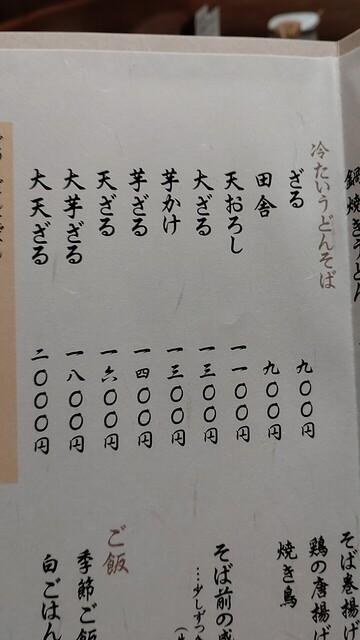 鍋焼きうどん
冷たいうどんそば
ざる 九〇〇円
田舎 九〇〇円
天おろし 一一〇〇円
大ざる 一三〇〇円
芋かけ 一三〇〇円
芋ざる 一四〇〇円
天ざる 一六〇〇円
大芋ざる 一八〇〇円
大天ざる 二〇〇〇円
そば巻揚げ
鶏の唐揚げ
焼き鳥
そば前の
…少しずつ
ご飯
季節ご飯
白ごはん